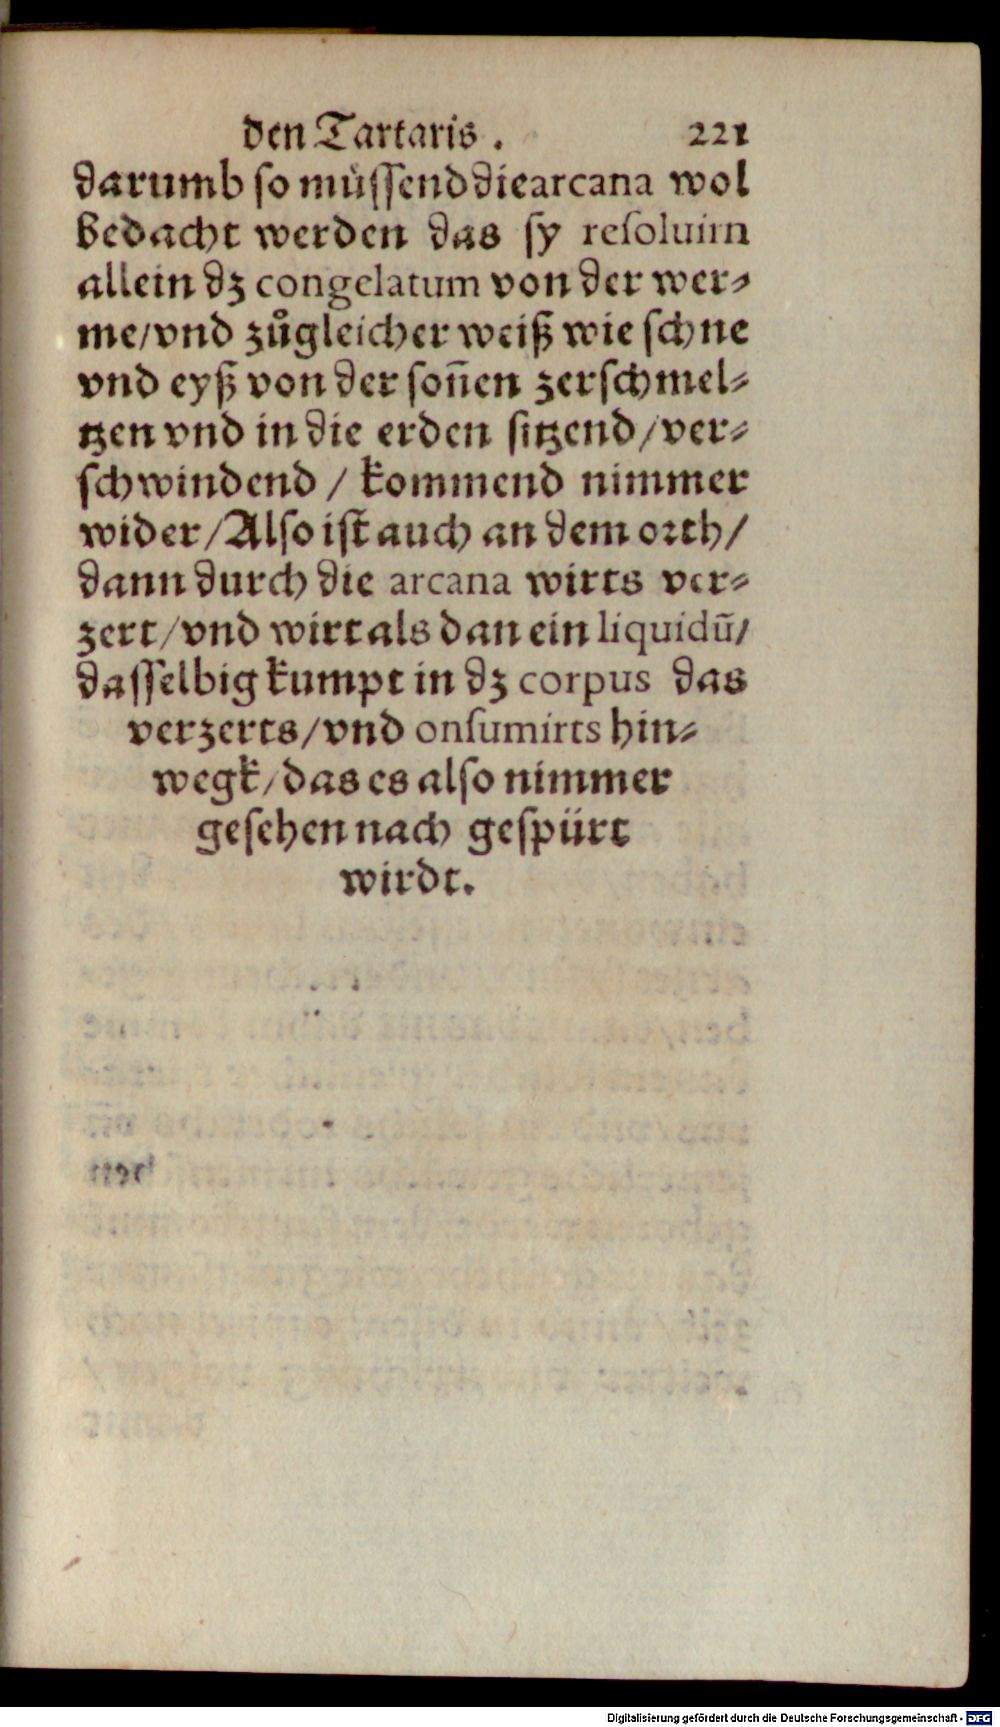 den Tartaris. 221
darumb so müssend die arcana wol
bedacht werden das sy resoluirn
allein dz congelatum von der wer-
me/vnd zůgleicher weiß wie schne
vnd eyß von der son̄en zerschmel-
tzen vnd in die erden sitzend/ver-
schwindend / kommend nimmer
wider/Also ist auch an dem orth/
dann durch die arcana wirts ver-
zert/vnd wirt als dan ein liquidū/
dasselbig kumpt in dz corpus das
verzerts/vnd onsumirts hin-
wegk/das es also nimmer
gesehen nach gespürt
wirdt.
Digitalisierung gefördert durch die Deutsche Forschungsgemeinschaft - DFG